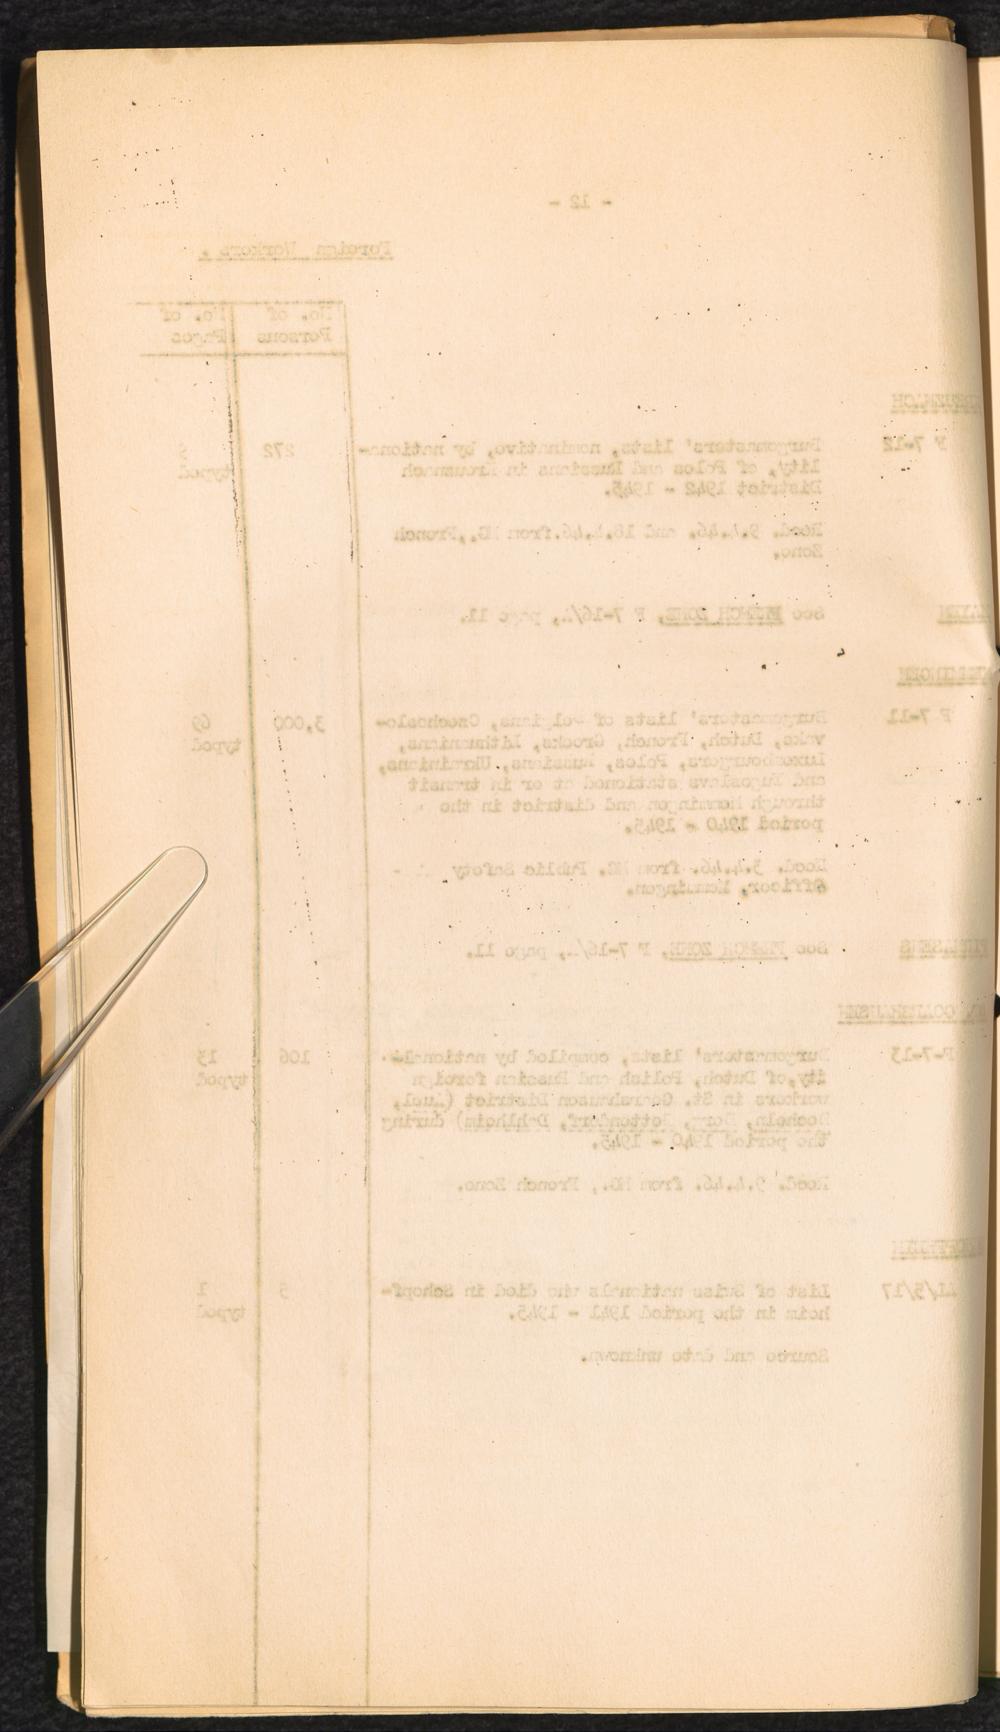 - 12 -
Foreign Workers.
No. of Persons
No. of Pages
KREUZNACH
F 7-12
Burgomasters' lists, nominative, by nationa-
lity, of Poles and Russians in Kreuznach
District 1942 - 1945.
272
typed
Recd. 9.4.46. and 18.4.46. from MG., French
Zone.
MAYEN
See FRENCH ZONE, F 7-16/A., page 11.
MEMMINGEN
F 7-11
Burgomasters' lists of Belgians, Czechoslo-
vaks, Dutch, French, Greeks, Lithuanians,
Luxembourgers, Poles, Russians, Ukrainians,
and Yugoslavs stationed at or in transit
through Memmingen and district in the
period 1940 - 1945.
3,000
69
typed
Recd. 3.4.46. from MG. Public Safety
Officer, Memmingen.
PIRMASENS
See FRENCH ZONE, F 7-16/A., page 11.
GOARSHAUSEN
F-7-13
Burgomasters' lists, compiled by national-
ity, of Dutch, Polish and Russian foreign
workers in St. Goarshausen District (Auel,
Bettendorf, Dahlheim) during
the period 1940 - 1945.
106
13
typed
Recd. 9.4.46. from MG., French Zone.
SCHOPFHEIM
List of Swiss nationals who died in Schopf-
heim in the period 1941 - 1945.
5
1
typed
Source and date unknown.